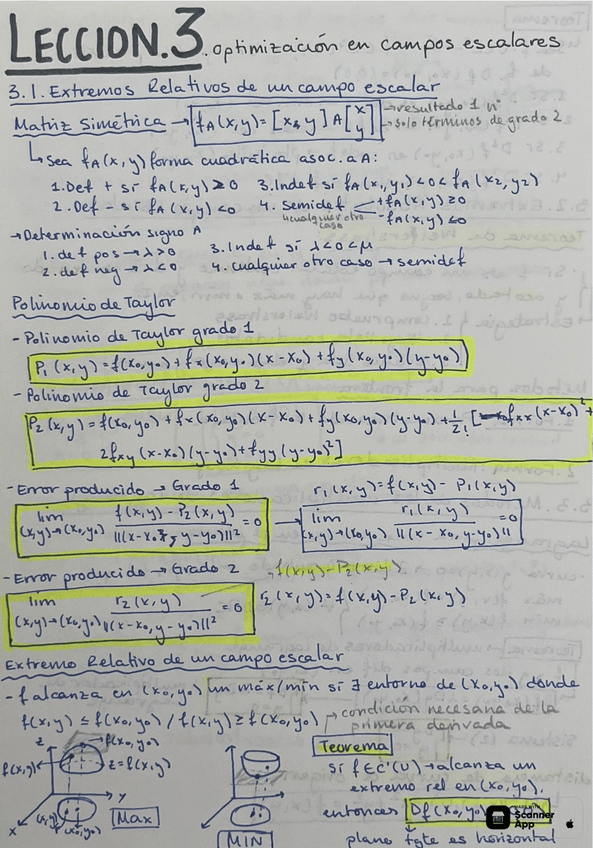 LECCION.3. optimización en campos escalares
3.1. Extremos Relativos de un campo escalar
Matriz Simétrica → f_A(x,y) = [x y] A [x y] → resultado 1 nº
→ solo términos de grado 2
↳ Sea f_A(x,y) forma cuadrática asoc. a A:
1. Def + si f_A(x,y) ≥ 0 3. Indef si f_A(x₁,y₁) < 0 < f_A(x₂,y₂)
2. Def - si f_A(x,y) < 0 4. Semidef +f_A(x,y) ≥ 0
cualquier otro caso -f_A(x,y) ≤ 0
→ Determinación signo A
1. def pos → λ > 0 3. Indef si λ < 0 < μ
2. def neg → λ < 0 4. cualquier otro caso → semidef
Polinomio de Taylor
- Polinomio de Taylor grado 1
P₁(x,y) = f(x₀,y₀) + fx(x₀,y₀)(x-x₀) + fy(x₀,y₀)(y-y₀)
- Polinomio de Taylor grado 2
P₂(x,y) = f(x₀,y₀) + fx(x₀,y₀)(x-x₀) + fy(x₀,y₀)(y-y₀) + 1/2! [fxx(x-x₀)² +
2fxy(x-x₀)(y-y₀) + fyy(y-y₀)²]
- Error producido → Grado 1 r₁(x,y) = f(x,y) - P₁(x,y)
lim (x,y)→(x₀,y₀) f(x,y) - P₂(x,y) / ||(x-x₀, y-y₀)||² = 0 → lim (x,y)→(x₀,y₀) r₁(x,y) / ||(x-x₀, y-y₀)|| = 0
- Error producido → Grado 2 f(x,y) - P₂(x,y)
lim (x,y)→(x₀,y₀) r₂(x,y) / ||(x-x₀, y-y₀)||² = 0 r₂(x,y) = f(x,y) - P₂(x,y)
Extremo Relativo de un campo escalar
- f alcanza en (x₀,y₀) un máx/min si ∃ entorno de (x₀,y₀) donde
f(x,y) ≤ f(x₀,y₀) / f(x,y) ≥ f(x₀,y₀) → condición necesaria de la
primera derivada
Teorema
z f(x₀,y₀)
f(x,y) z=f(x,y)
y
x (x,y) (x₀,y₀) Max
MIN
Si f∈C¹(U) → alcanza un
extremo rel en (x₀,y₀),
entonces Df(x₀,y₀)
plano tgte es horizontal
Scanner
App